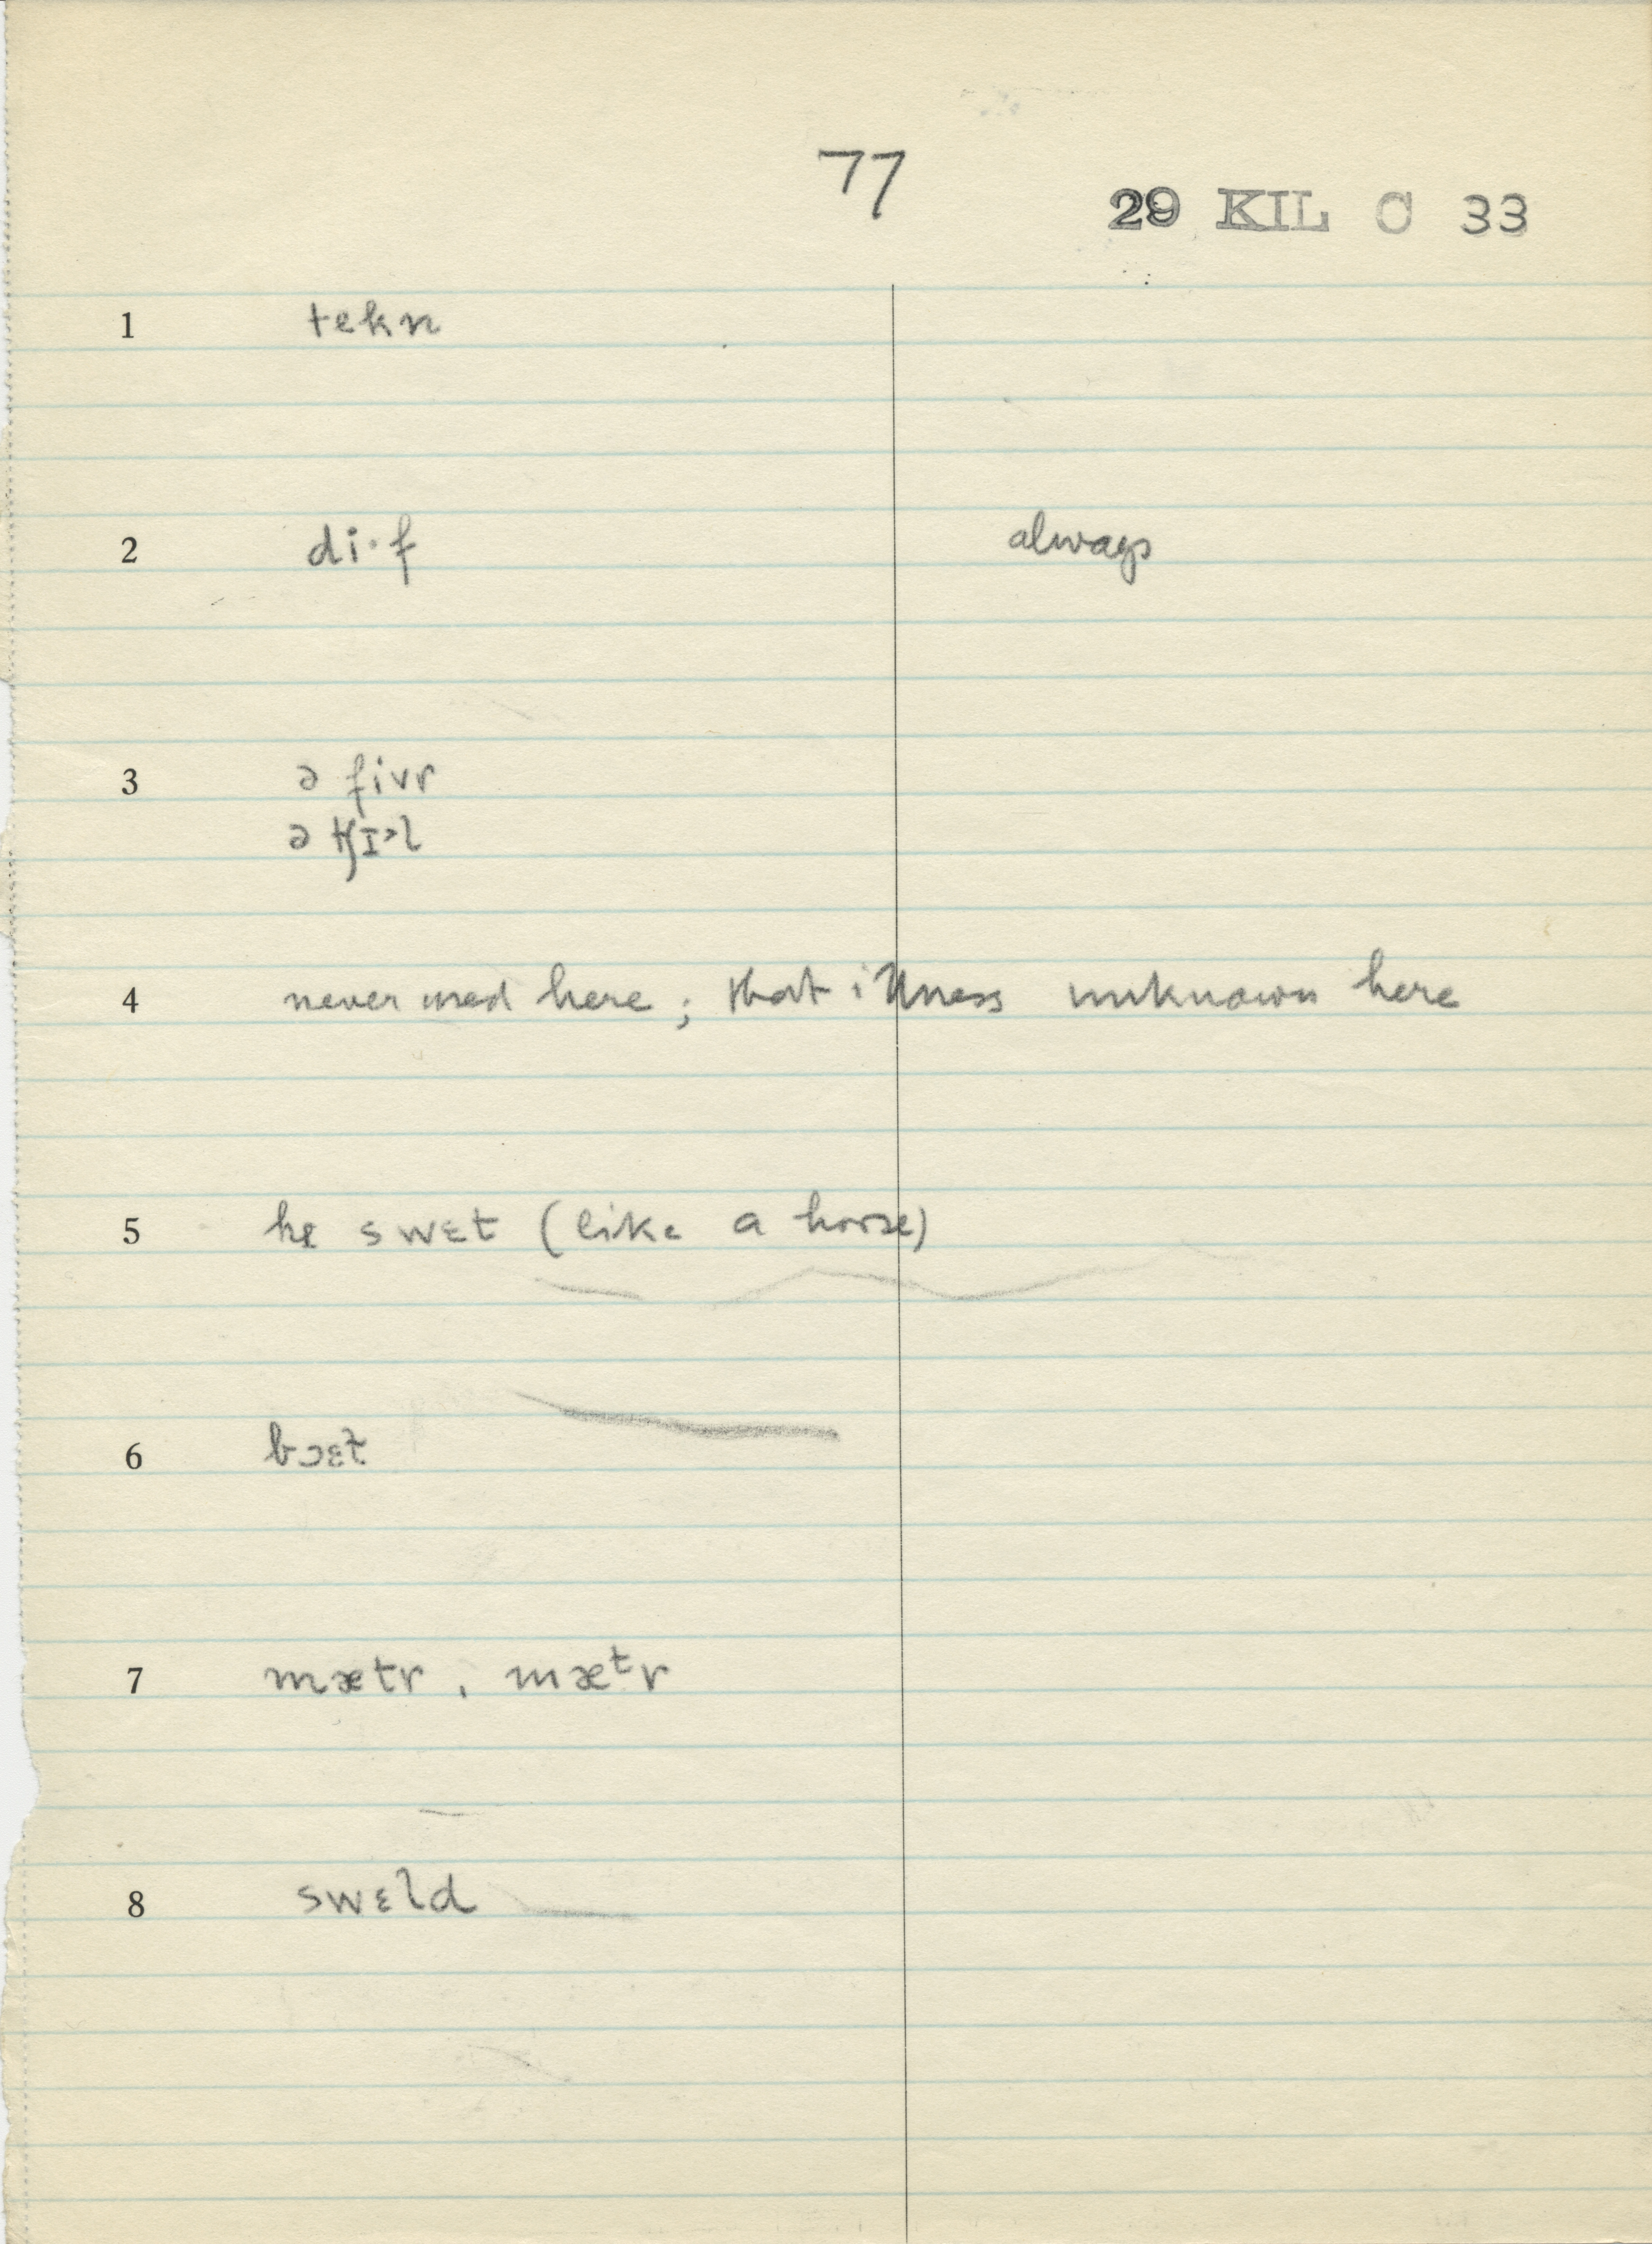 77
29 KIL C 33
1 tekn
2 di·f always
3 ə fivr
ə tʃɪ˃l
4 never used here; that illness unknown here
5 hɪ swɛt (like a horse)
6 bɔɛt
7 mætr, mæᵗr
8 swɛld